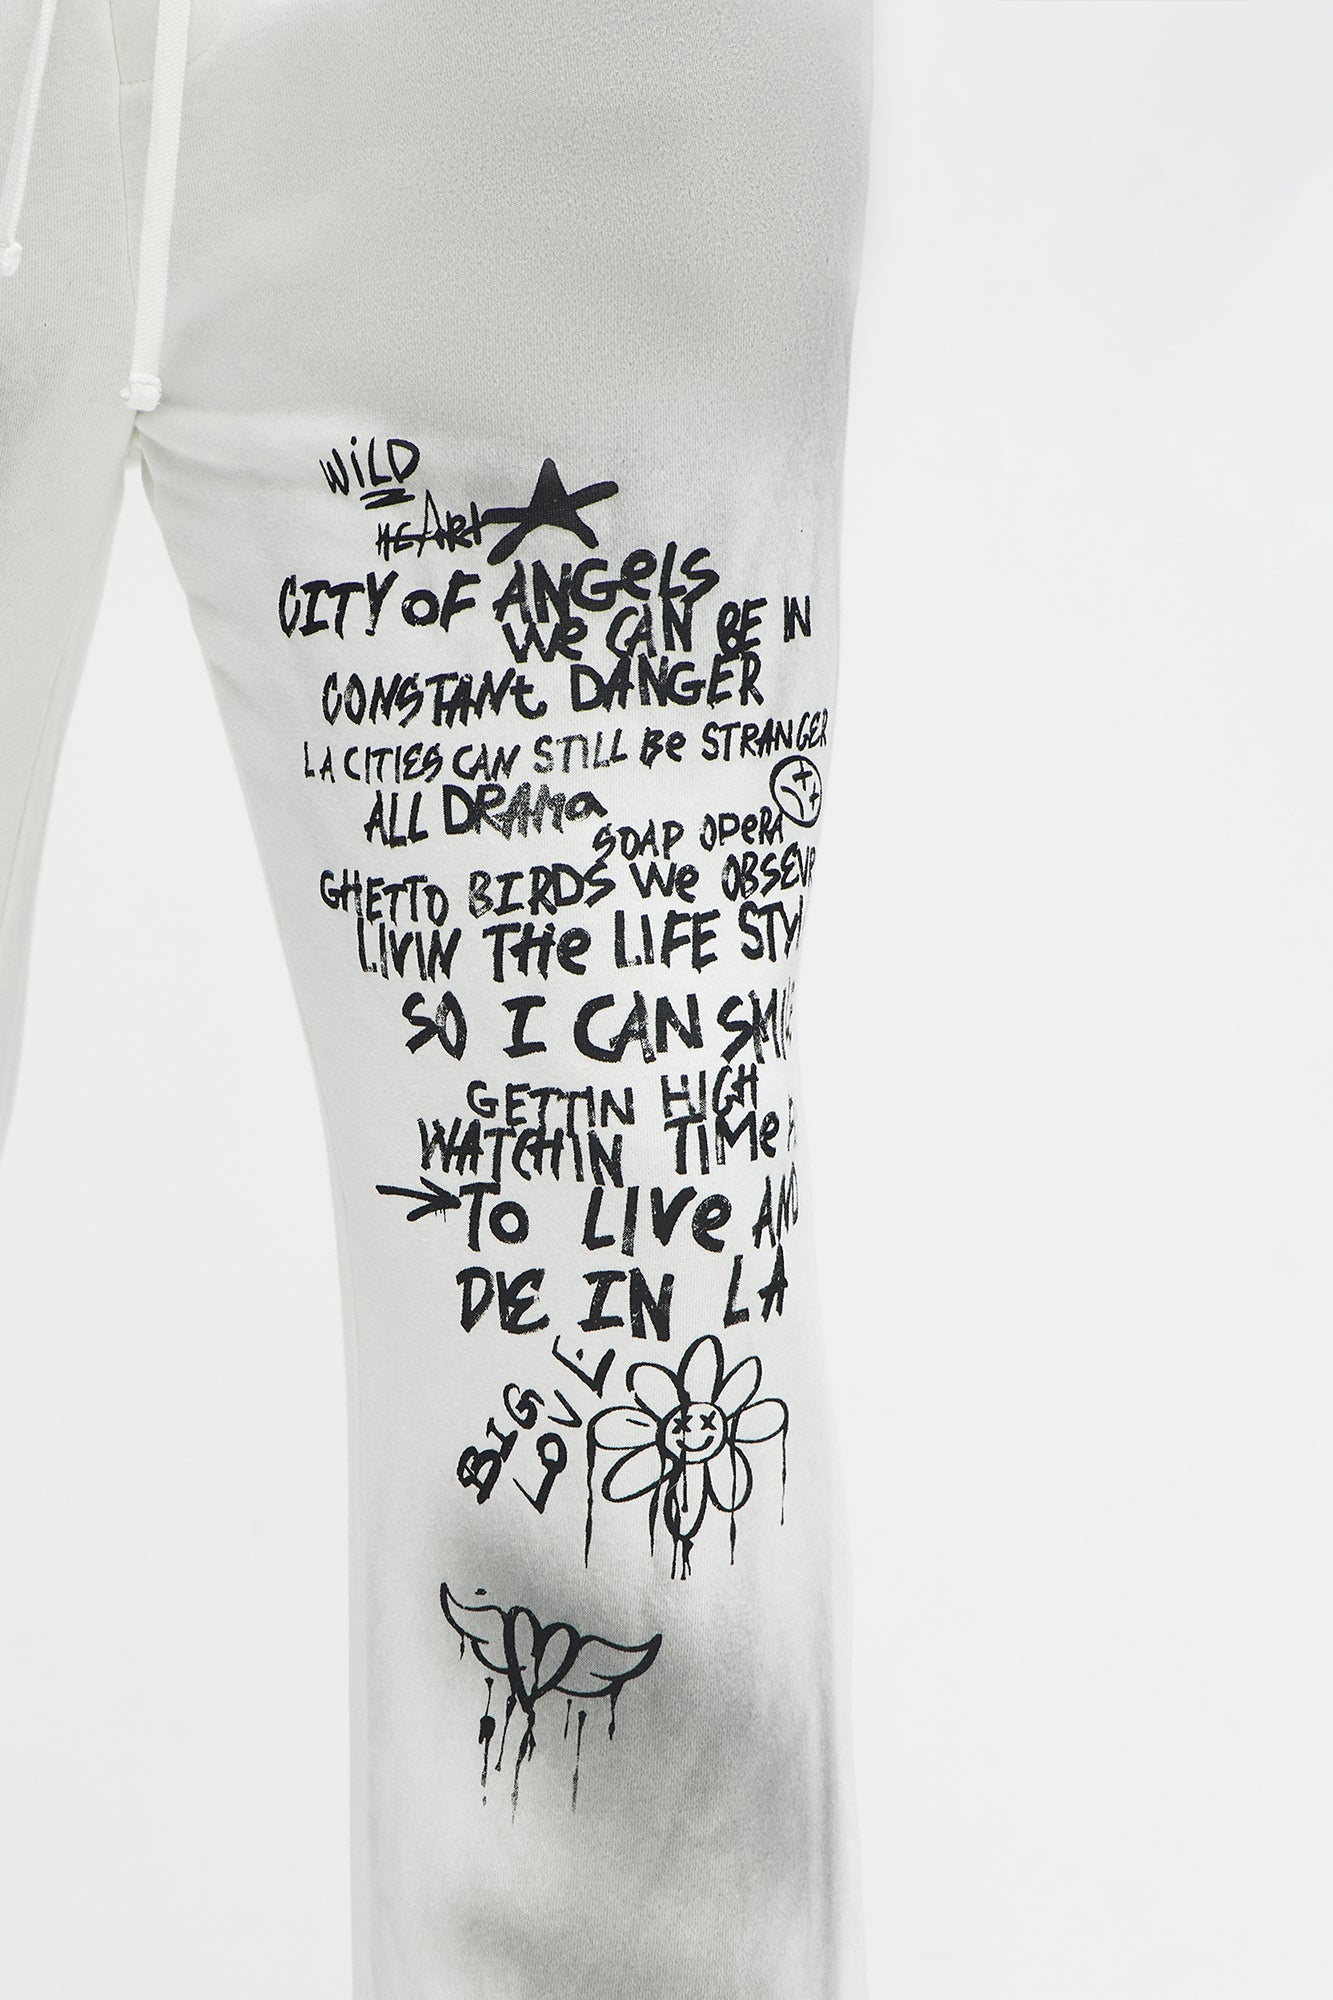 WiLD
HEARt
CITY OF ANGelS
We CAN BE IN
CONSTANt DANGER
LA CITIES CAN STILL Be STRANGER
ALL DRAMa
SOAP OPeRA
GHETTO BIRDS We OBSEVR
LIVIN THe LIFE STYL
SO I CAN SMILE
GETTIN HIGH
WATCHIN TIMe
To LIVe AND
DIE IN LA
BIG
LOVE